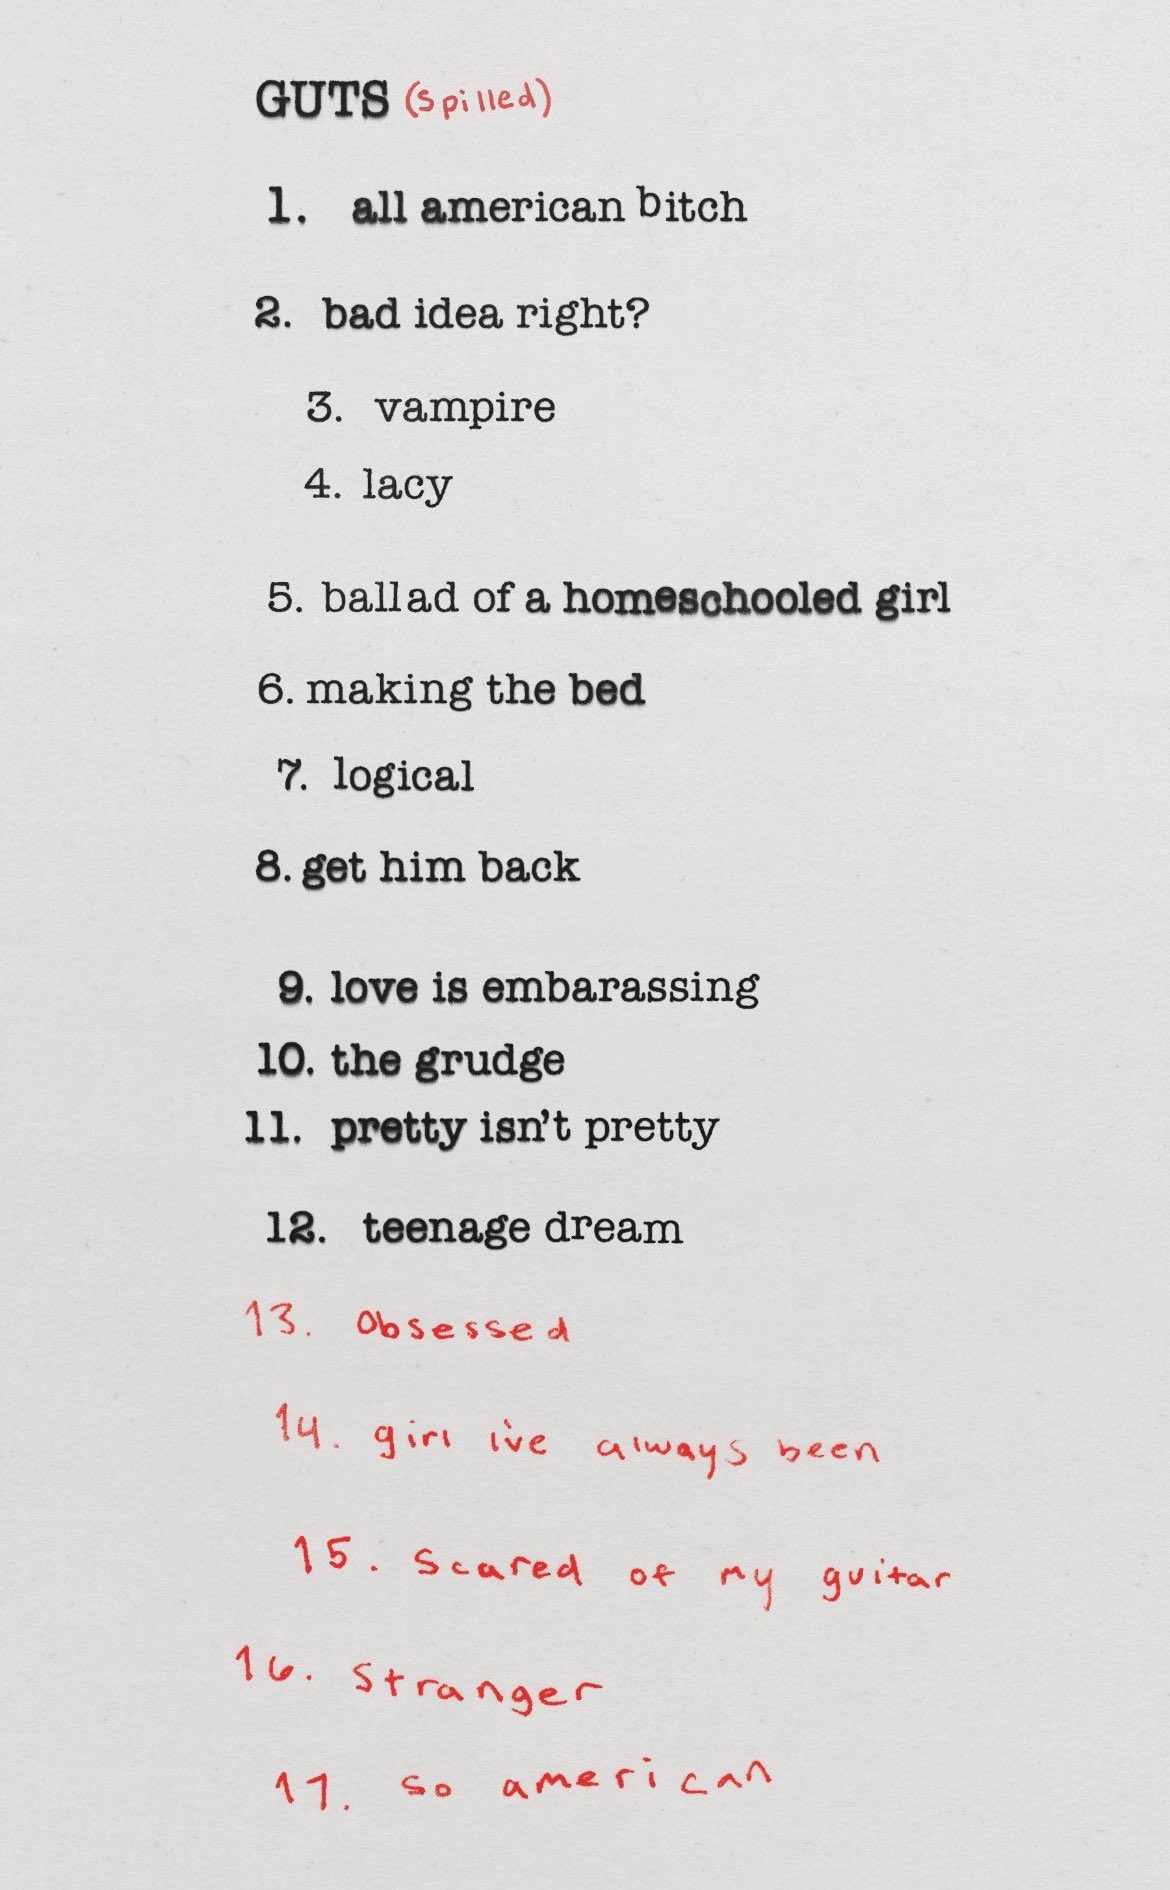 GUTS (spilled)
1. all american bitch
2. bad idea right?
3. vampire
4. lacy
5. ballad of a homeschooled girl
6. making the bed
7. logical
8. get him back
9. love is embarassing
10. the grudge
11. pretty isn't pretty
12. teenage dream
13. Obsessed
14. girl i've always been
15. Scared of my guitar
16. Stranger
17. so american